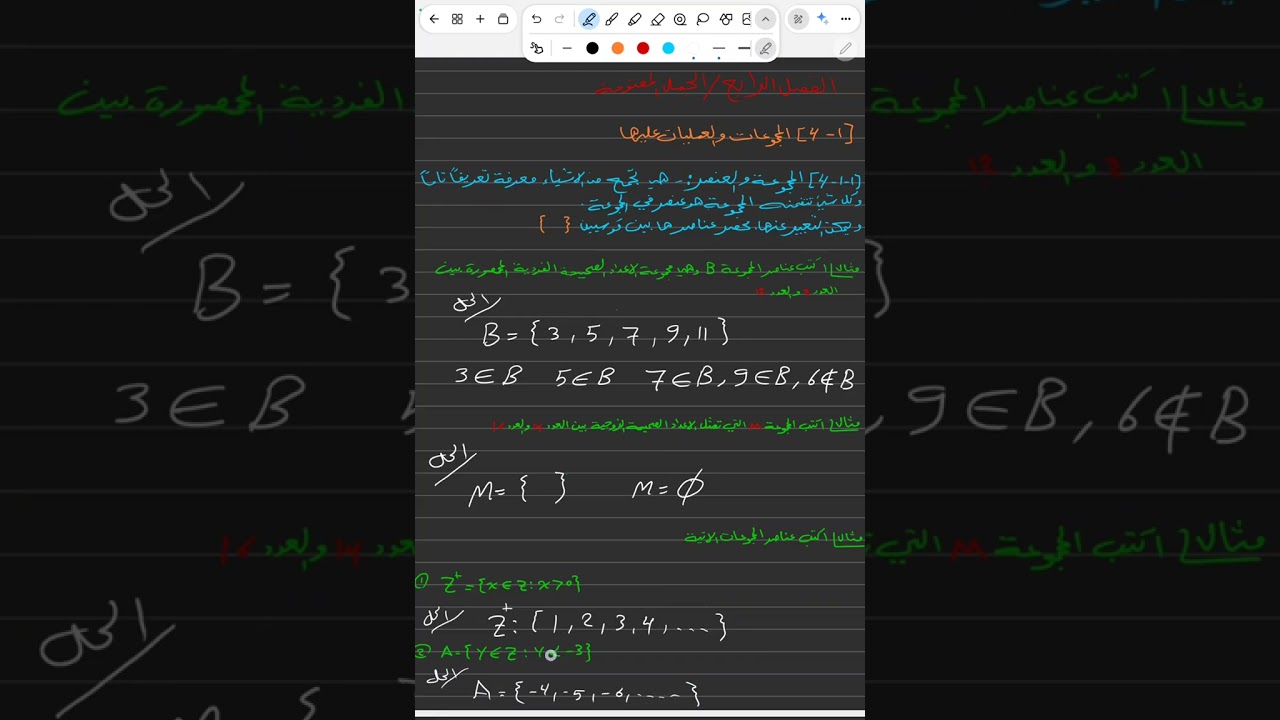 الفصل الرابع / الجمل المفتوحة
[4-1] المجموعات والعمليات عليها
[4-1-1] المجموعة والعنصر :- هي تجمع من الاشياء معرفة تعريفاً تاماً
وكل شيئ تتضمنه المجموعة هو عنصر في المجموعة.
ويمكن التعبير عنها بحصر عناصرها بين قوسين { }
مثال/ اكتب عناصر المجموعة B وهي مجموعة الاعداد الصحيحة الفردية المحصورة بين
العدد 2 والعدد 12
الحل/
B = { 3 , 5 , 7 , 9 , 11 }
3 ∈ B 5 ∈ B 7 ∈ B , 9 ∈ B , 6 ∉ B
مثال/ اكتب المجموعة M التي تمثل الاعداد الصحيحة الزوجية بين العدد 14 والعدد 16
الحل/
M = { } M = ϕ
مثال/ اكتب عناصر المجموعات الاتية
① Z⁺ = {x ∈ Z : x > 0}
الحل/ Z⁺ : { 1 , 2 , 3 , 4 , .... }
② A = {Y ∈ Z : Y < -3}
الحل/ A = { -4 , -5 , -6 , ..... }